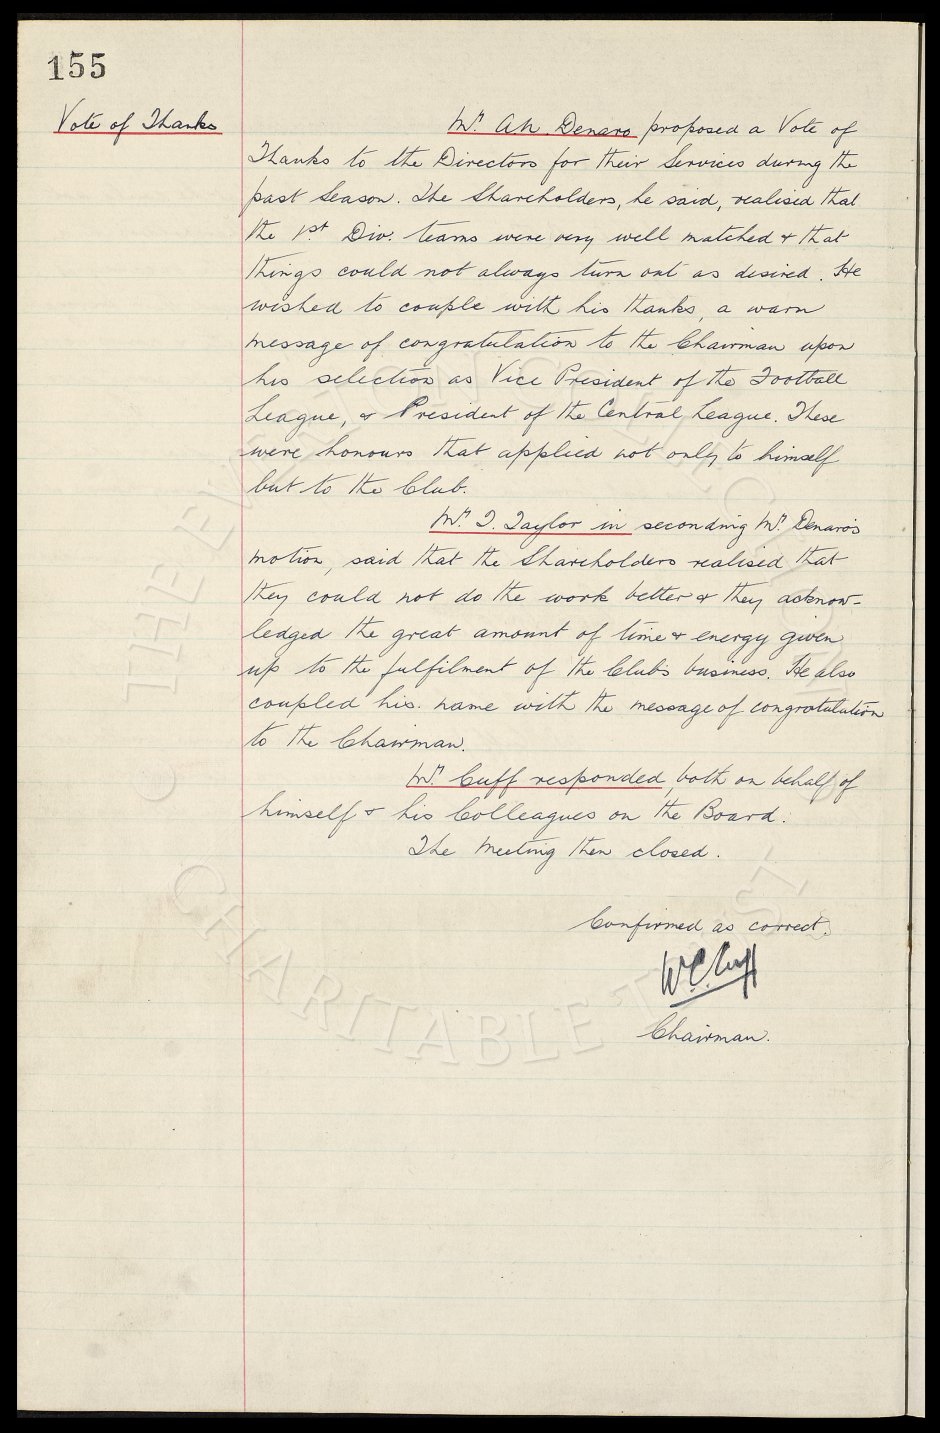 155
Vote of Thanks
Mr. A.N. Denaro proposed a Vote of
Thanks to the Directors for their Services during the
past Season. The Shareholders, he said, realised that
the 1st Div. teams were very well matched & that
things could not always turn out as desired. He
wished to couple with his thanks, a warm
message of congratulation to the Chairman upon
his selection as Vice President of the Football
League, & President of the Central League. These
were honours that applied not only to himself
but to the Club.
Mr. T. Taylor in seconding Mr. Denaro's
motion, said that the Shareholders realised that
they could not do the work better & they acknow-
ledged the great amount of time & energy given
up to the fulfilment of the Clubs business. He also
coupled his name with the message of congratulation
to the Chairman.
Mr. Cuff responded, both on behalf of
himself & his Colleagues on the Board.
The Meeting then closed.
Confirmed as correct.
W.C. Cuff
Chairman.
© THE EVERTON COLLECTION
CHARITABLE TRUST